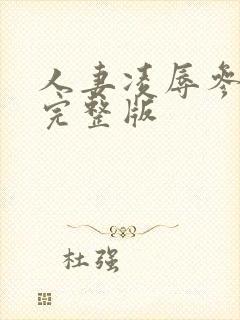 人妻凌辱参
完整版
杜强